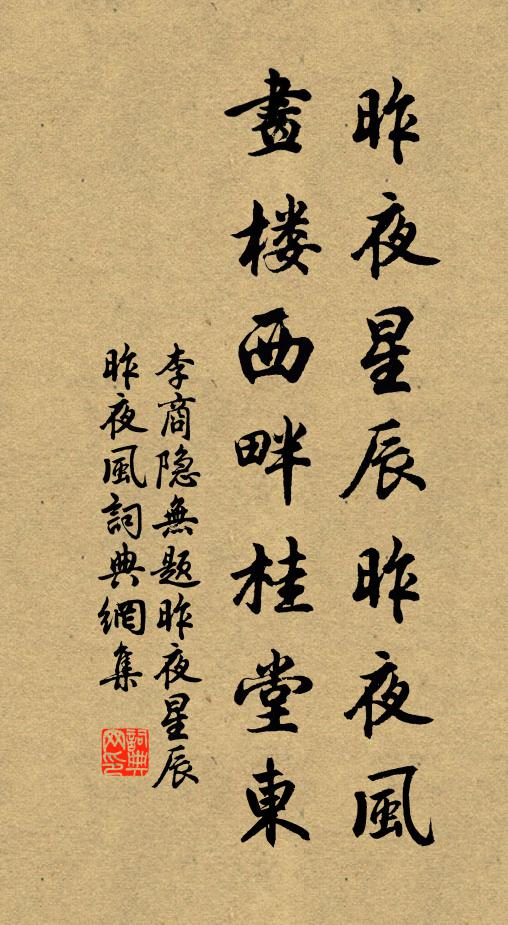 昨夜星辰昨夜風
畫楼西畔桂堂東
李商隐無题昨夜星辰
昨夜風詞典網集
詞典
网印